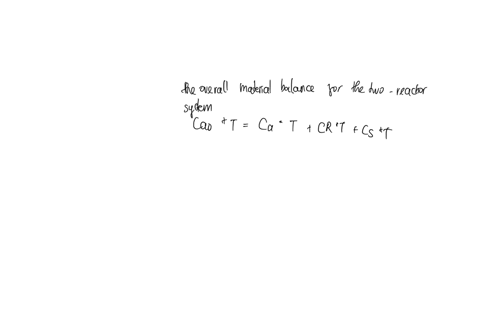 the overall material balance for the two-reactor
system
Cao * T = Ca * T + CR * T + Cs * T